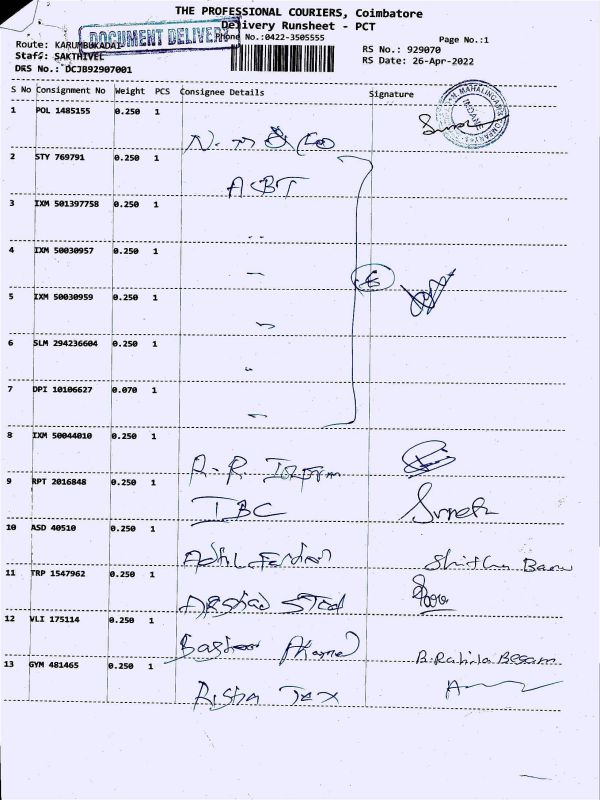 THE PROFESSIONAL COURIERS, Coimbatore
DOCUMENT DELIVERY
Delivery Runsheet - PCT
Phone No.:0422-3505555
Page No.:1
Route: KARUMBUKADAI
RS No.: 929070
Staff: SAKTHIVEL
RS Date: 26-Apr-2022
DRS No.: DCJB92907001
S No Consignment No Weight PCS Consignee Details Signature
N. MAHALINGAM & COMPANY INDANE
1 POL 1485155 0.250 1
2 STY 769791 0.250 1 ACBT
3 IXM 501397758 0.250 1
4 IXM 50030957 0.250 1
5 IXM 50030959 0.250 1
6 SLM 294236604 0.250 1
7 DPI 10106627 0.070 1
8 IXM 50044010 0.250 1 R.R
9 RPT 2016848 0.250 1 IBC
10 ASD 40510 0.250 1
11 TRP 1547962 0.250 1 Arshad Steel
12 VLI 175114 0.250 1 Basheer Ahamed B. Rahila Begam
13 GYM 481465 0.250 1 Tex